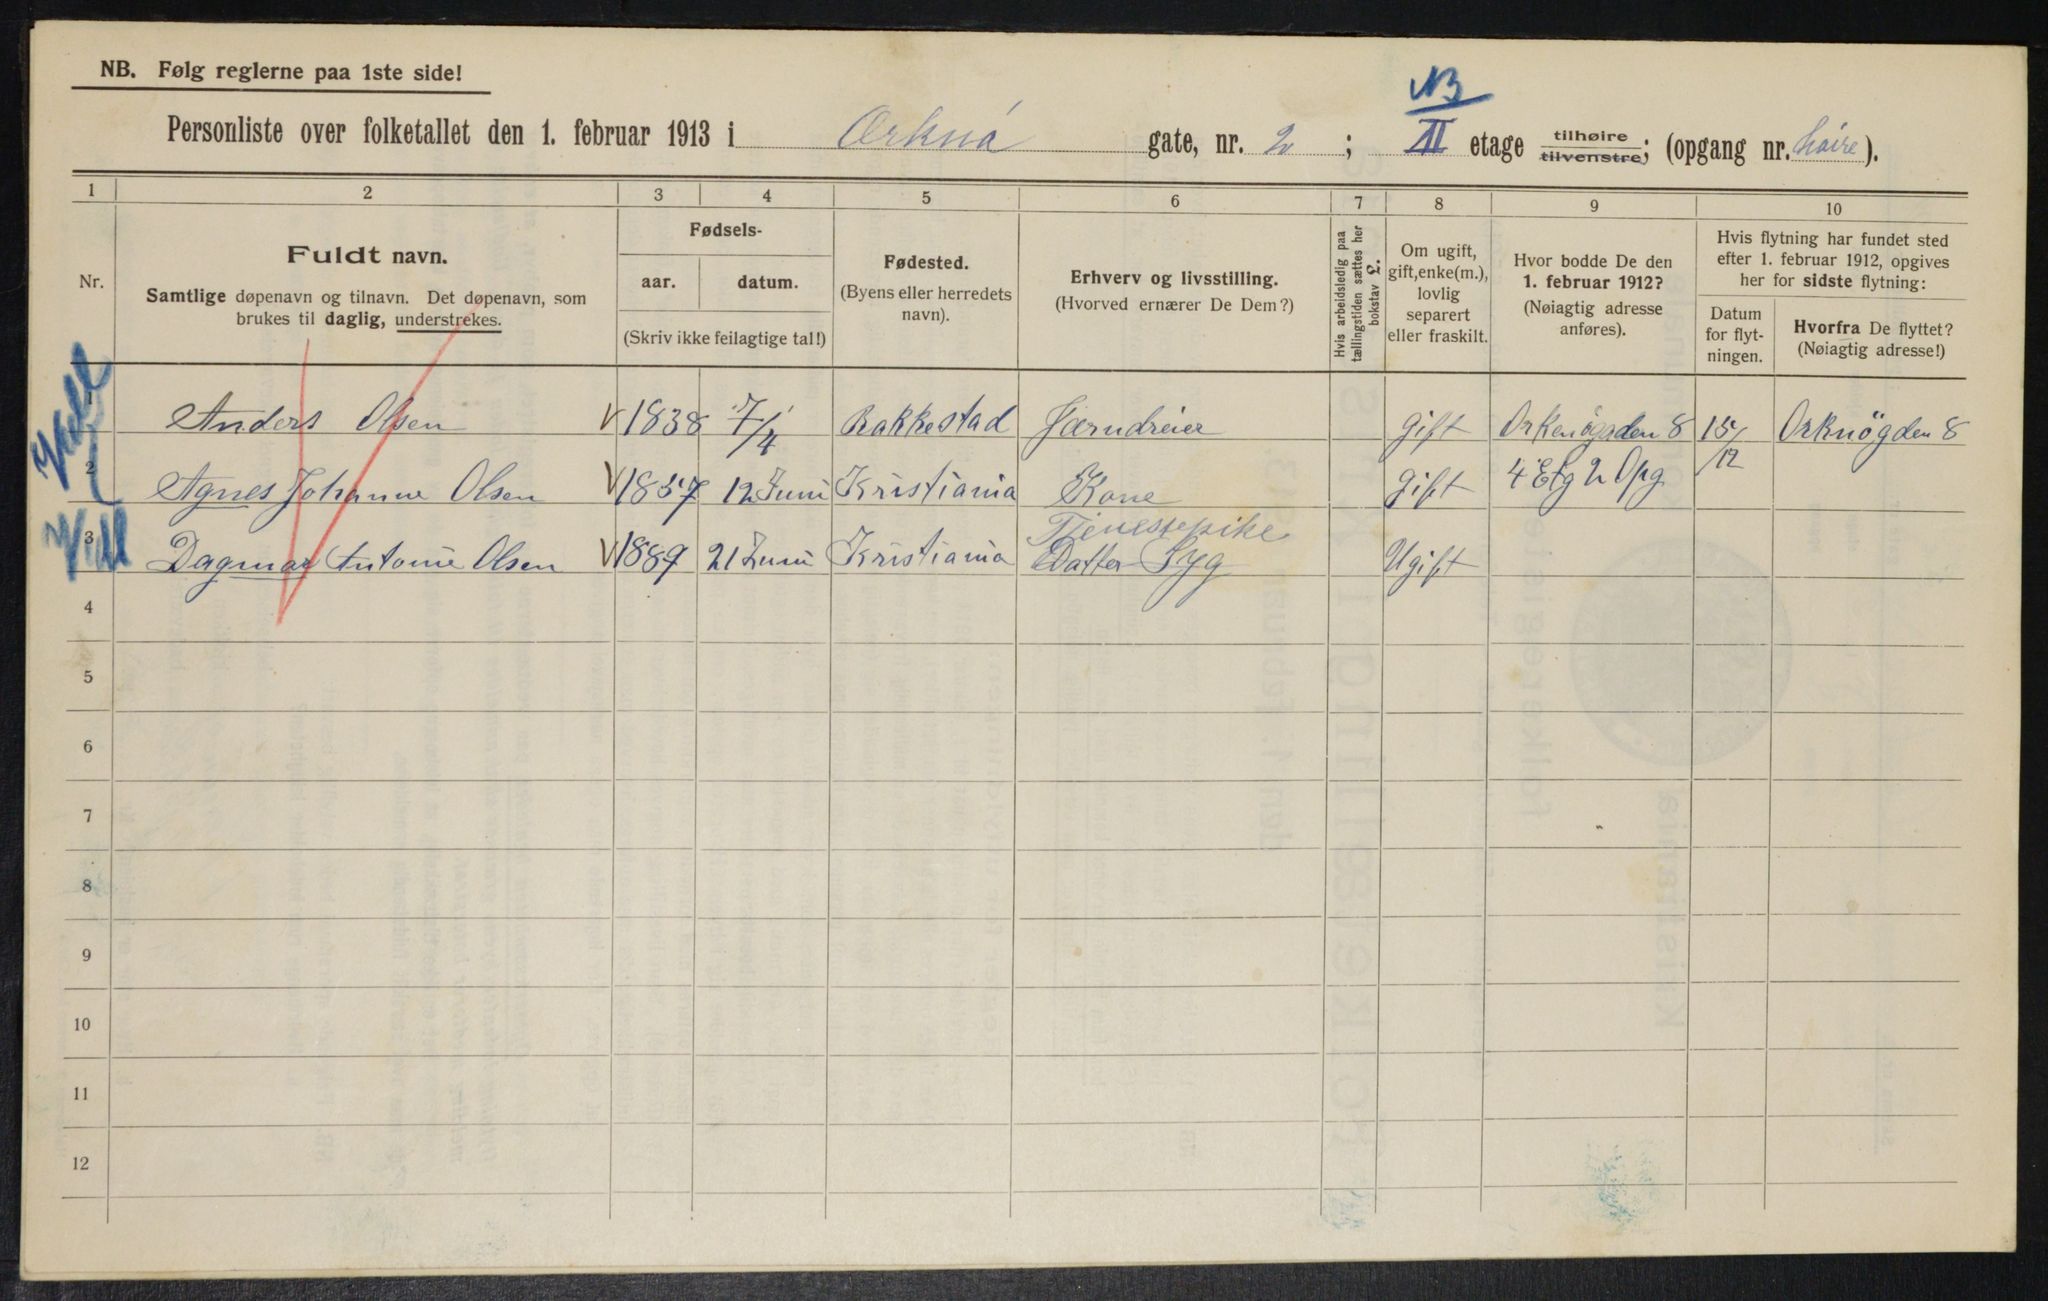 NB. Følg reglerne paa 1ste side!
NB
Personliste over folketallet den 1. februar 1913 i Orknø gate, nr. 2 ; III etage tilhøire tilvenstre; (opgang nr. høire).
1 2 3 4 5 6 7 8 9 10
Nr.
Fuldt navn.
Samtlige døpenavn og tilnavn. Det døpenavn, som
brukes til daglig, understrekes.
Fødsels-
aar. datum.
(Skriv ikke feilagtige tal!)
Fødested.
(Byens eller herredets
navn).
Erhverv og livsstilling.
(Hvorved ernærer De Dem?)
Hvis arbeidsledig paa
tællingstiden sættes her
bokstav L.
Om ugift,
gift, enke(m.),
lovlig
separert
eller fraskilt.
Hvor bodde De den
1. februar 1912?
(Nøiagtig adresse
anføres).
Hvis flytning har fundet sted
efter 1. februar 1912, opgives
her for sidste flytning:
Datum
for flyt-
ningen.
Hvorfra De flyttet?
(Nøiagtig adresse!)
1 Anders Olsen 1838 7/4 Rakkestad Jærndreier gift Orkenøgaden 8 15/12 Orknögden 8
2 Agnes Johanne Olsen 1857 12 Juni Kristiania Kone gift 4 Etg 2 Opg
Tjenestepike
3 Dagmar Antonie Olsen 1889 21 Juni Kristiania Datter Syg Ugift
4
5
6
7
8
9
10
11
12